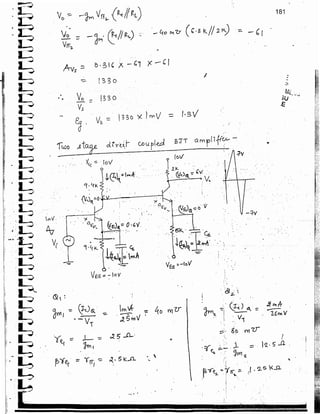 181
V₀ = -gm Vπ₂ (Rc // RL)
V₀/Vπ₂ = -gm (Rc // RL) = -40 m℧ (6.8K // 2K) = -61
Avs = 0.316 x -69 x -61
= 1330
∴ V₀/Vs = 1330
eg. V₀ = 1330 x 1mV = 1.3V
Two stage direct coupled BJT amplifier
Vcc = 10V
10V
3V
2K
9.4K
V₀
1mV
0.6V
(VE)Q = -0.6V
(VE)Q = 0V
-3V
Vs
9.4K
5K
CE
CE
VEE = -10V
VEE = -10V
Q1:
gm1 = (Ic)Q / VT = 1mA / 25mV = 40 m℧
re1 = 1/gm1 = 25 Ω
βre1 = rπ1 = 2.5KΩ
Q2:
gm2 = (Ic)Q / VT = 2mA / 25mV
= 80 m℧
re2 = 1/gm2 = 12.5 Ω
βre2 = rπ2 = 1.25KΩ